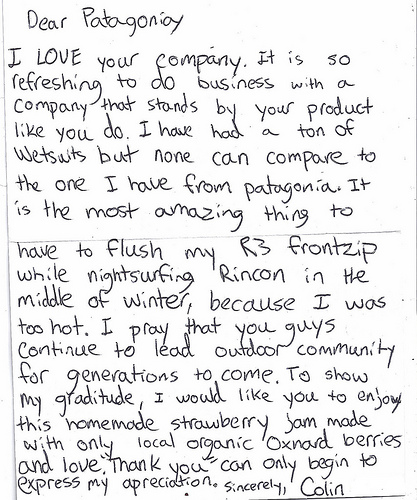 Dear Patagonioy
I LOVE your company. It is so
refreshing to do business with a
company that stands by your product
like you do. I have had a ton of
Wetsuits but none can compare to
the one I have from patagonia. It
is the most amazing thing to
have to flush my R3 frontzip
while nightsurfing Rincon in the
middle of winter, because I was
too hot. I pray that you guys
continue to lead outdoor community
for generations to come. To show
my graditude, I would like you to enjoy
this homemade strawberry jam made
with only local organic Oxnard berries
and love. "Thank you" can only begin to
express my apreciation. Sincerely, Colin